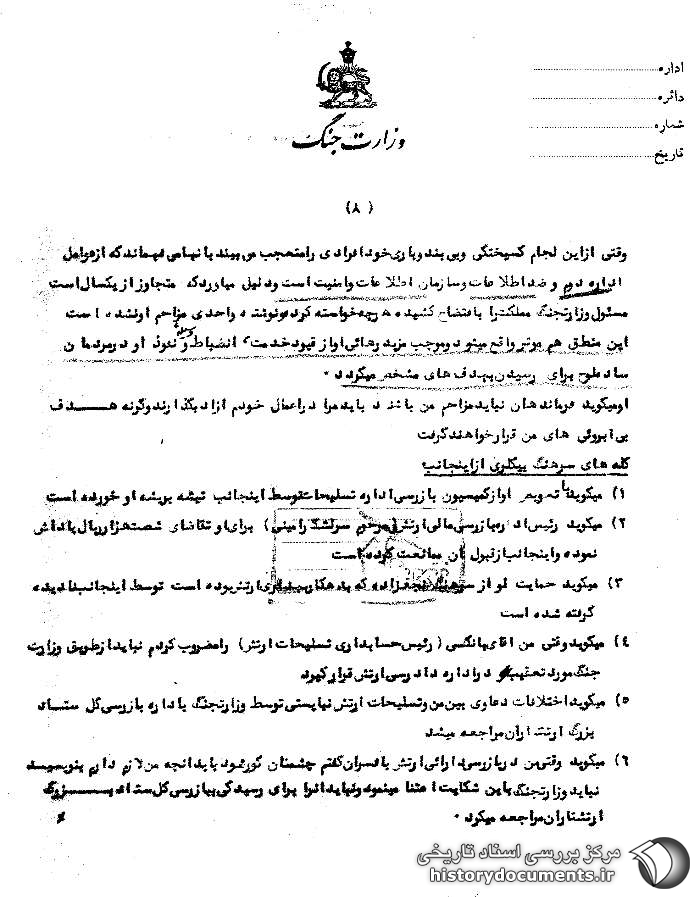 اداره
دائره
شماره
تاریخ
وزارت جنگ
(۸)
وقتی از این لجام گسیختگی وبی بند وباری خود افرادی را متعجب می بیند با نهامی فهماند که از عوامل
اداره دوم و ضد اطلاعات وسازمان اطلاعات وامنیت است ودلیل میآورد که متجاوز از یکسال است
مسئول وزارتجنگ مملکت را بافتضاح کشیده هرچه خواسته کرده ونوشته واحدی مزاحم او نشده است
این منطق هم موثر واقع میشود وموجب مزید رهائی او از قیود خدمت انضباط و توسعه نفوذ او در مردمان
ساده لوح برای رسیدن بهدف های مشخص میگردد ۰
او میگوید فرماندهان نباید مزاحم من باشند باید مرا در اعمال خودم آزاد بگذارند وگرنه هدف
بی آبروئی های من قرار خواهند گرفت
گله های سرهنگ بیگلری از اینجانب:
۱) میگوید با تعویض او از کمیسیون بازرسی اداره تسلیحات توسط اینجانب تیشه بریشه او خورده است
۲) میگوید رئیس اداره بازرسی مالی ارتش (مرحوم سرلشگر امینی) برای او تقاضای شصت هزار ریال پاداش
نموده واینجانب از قبول آن ممانعت کرده است
۳) میگوید حمایت او از سرهنگ که بدهکار ارتش بوده است توسط اینجانب نادیده
گرفته شده است
۴) میگوید وقتی من آقای بانگسی (رئیس حسابداری تسلیحات ارتش) را مضروب کردم نباید از طریق وزارت
جنگ مورد تعقیب در اداره دادرسی ارتش قرار گیرد
۵) میگوید اختلافات دعاوی بین من وتسلیحات ارتش نبایستی توسط وزارتجنگ باداره بازرسی کل ستاد
بزرگ ارتشتاران مراجعه میشد
۶) میگوید وقتی من در بازرسی دارائی ارتش بافسران گفتم چشمتان کور شود باید آنچه من لازم دارم بنویسید
نباید وزارتجنگ باین شکایت اعتنا مینمود ونباید آنرا برای رسیدگی ببازرسی کل ستاد بزرگ
ارتشتاران مراجعه میکرد ۰
مرکز بررسی اسناد تاریخی
historydocuments.ir